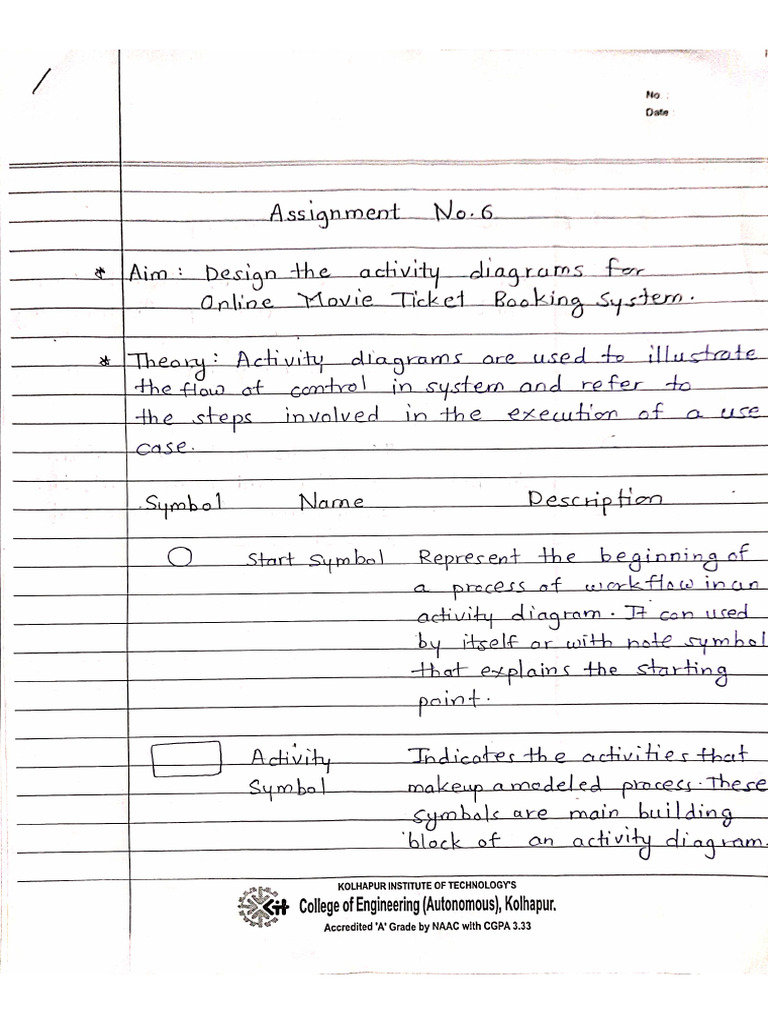 No. :
Date :
Assignment No. 6
* Aim : Design the activity diagrams for
Online Movie Ticket Booking System.
* Theory : Activity diagrams are used to illustrate
the flow of control in system and refer to
the steps involved in the execution of a use
case.
Symbol Name Description
Start Symbol Represent the beginning of
a process of workflow in an
activity diagram. It can used
by itself or with note symbol
that explains the starting
point.
Activity Indicates the activities that
Symbol makeup a modeled process. These
symbols are main building
block of an activity diagram.
KOLHAPUR INSTITUTE OF TECHNOLOGY'S
KIT College of Engineering (Autonomous), Kolhapur.
Accredited 'A' Grade by NAAC with CGPA 3.33